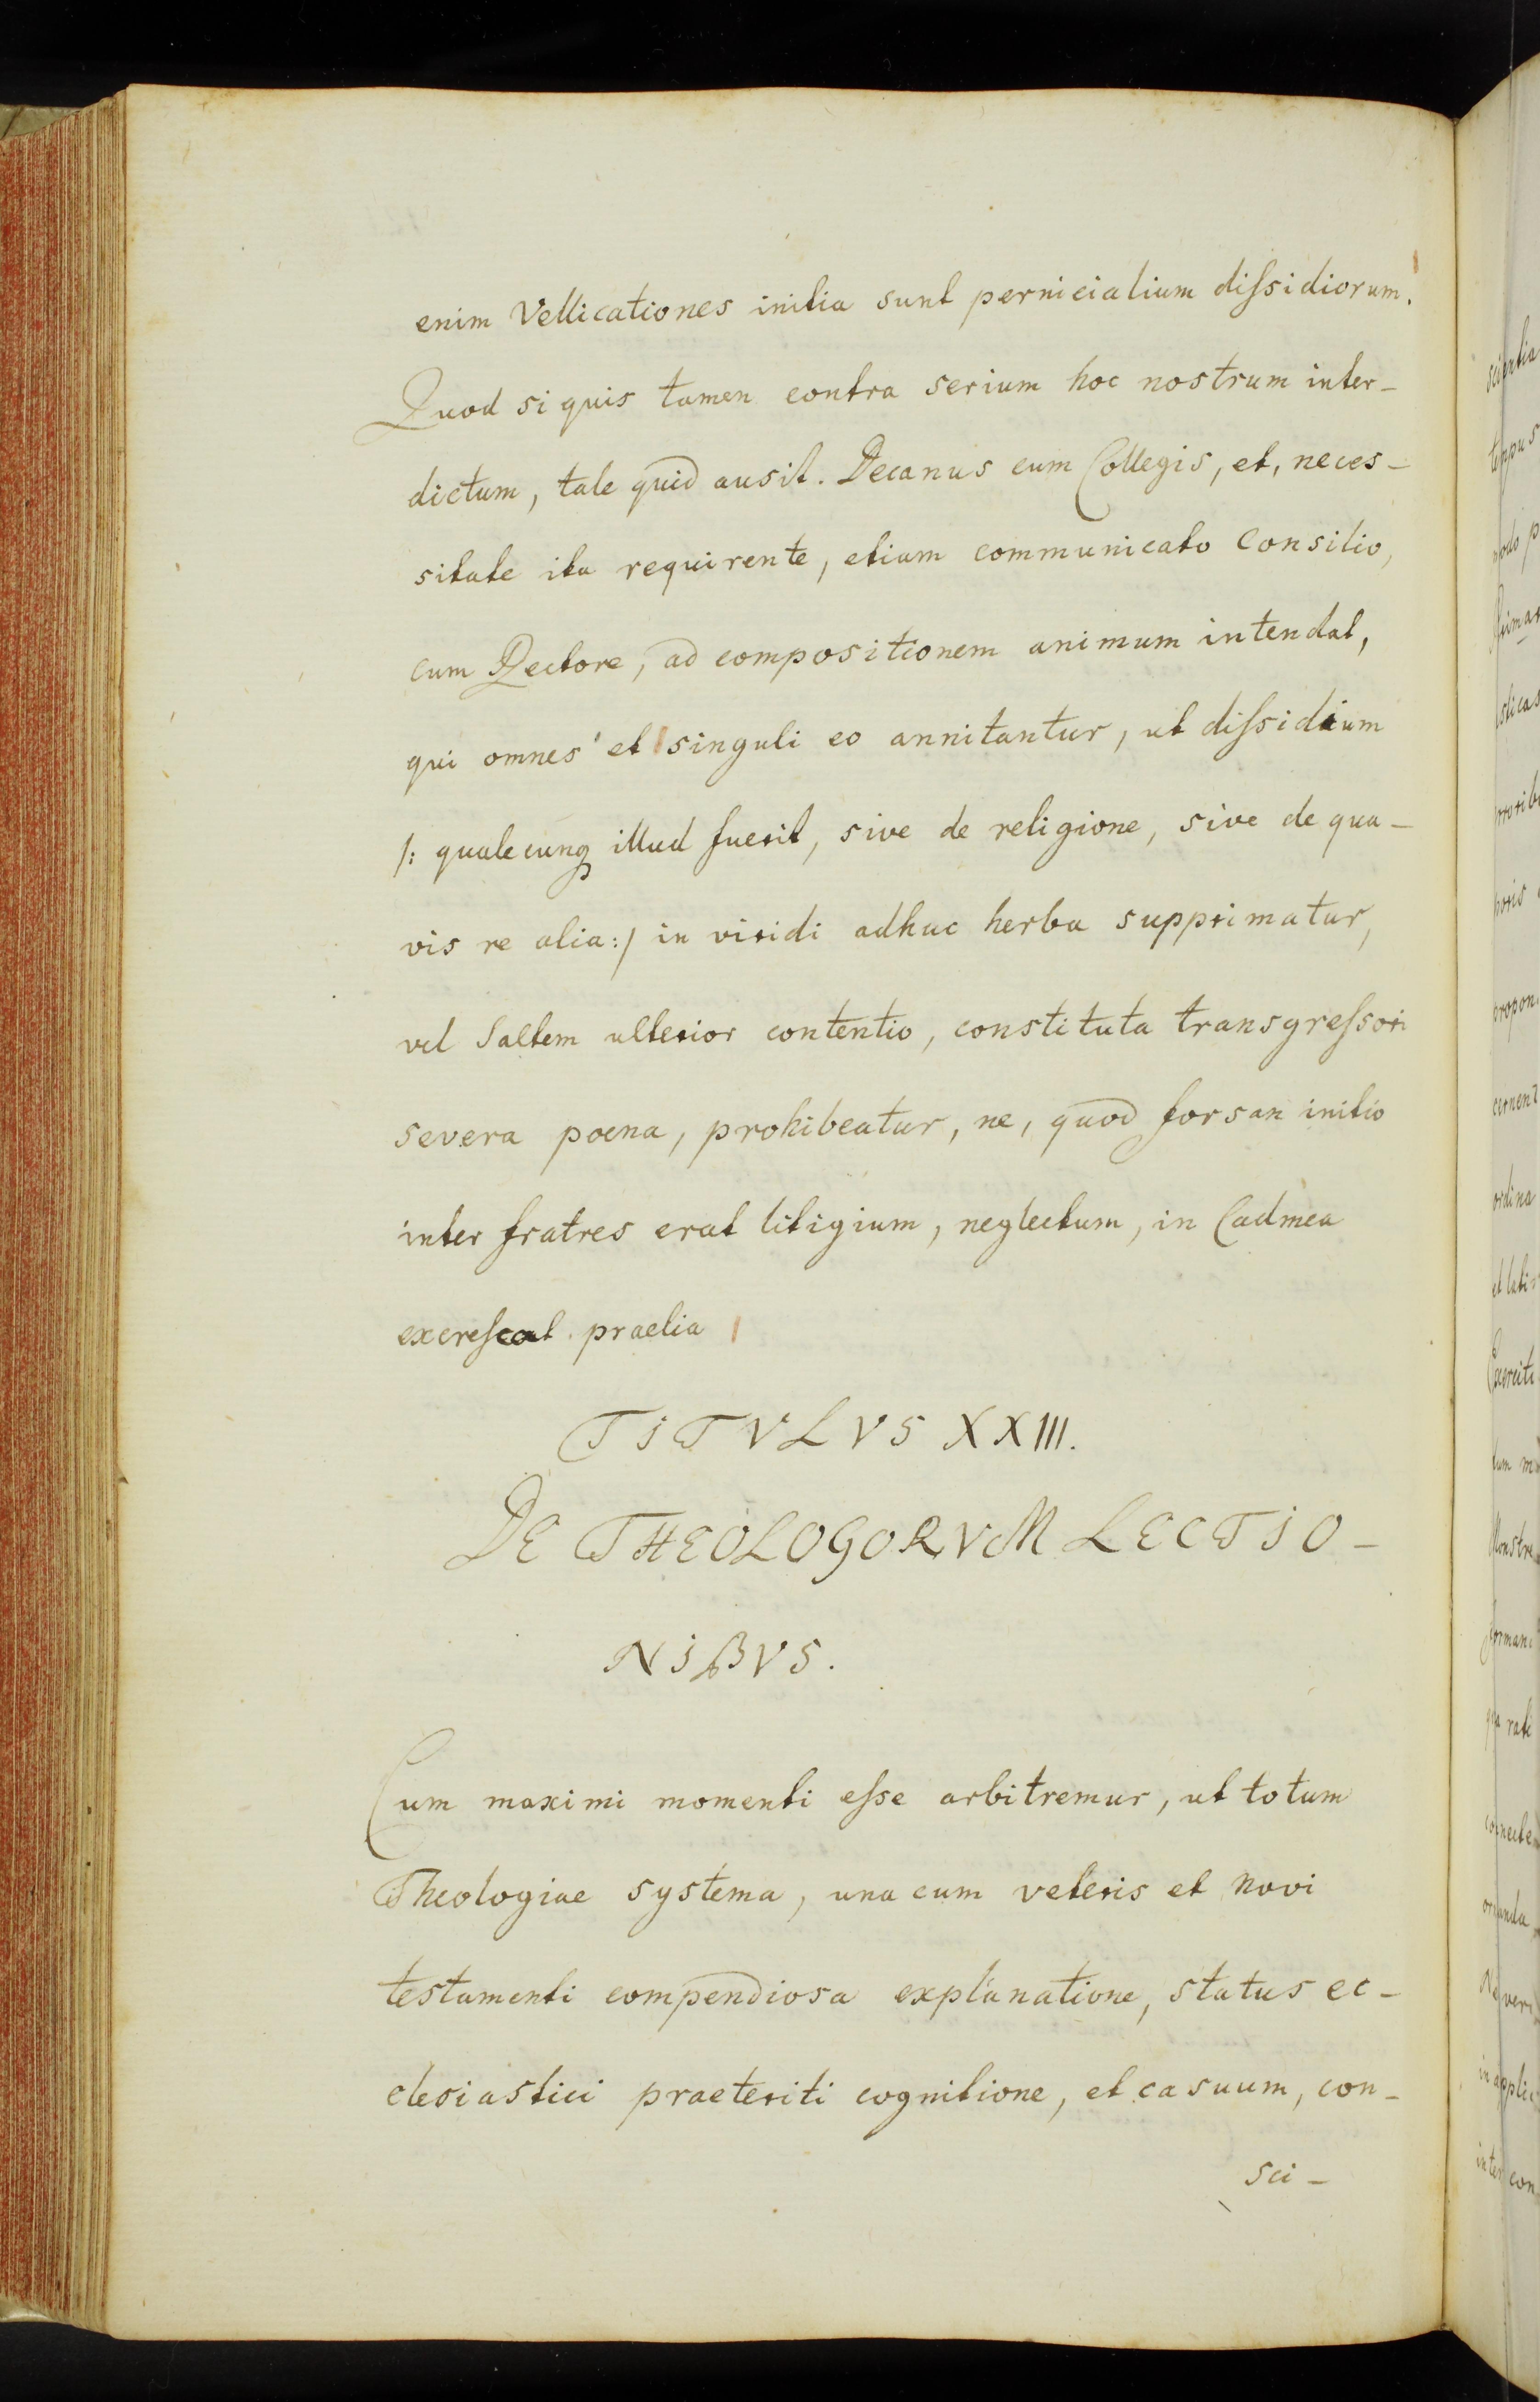 enim Vellicationes initia sunt pernicialium diſsidiorum.
Quod si quis tamen contra serium hoc nostrum inter-
dictum, tale quid ausit. Decanus cum Collegis, et, neces-
sitate ita requirente, etiam communicato Consilio,
cum Rectore, ad compositionem animum intendat,
qui omnes et singuli eo annitantur, ut diſsidium
/: qualecunq illud fuerit, sive de religione, sive de qua-
vis re alia:/ in viridi adhuc herba supprimatur,
vel Saltem ulterior contentio, constituta transgreſsori
severa poena, prohibeatur, ne, quod forsan initio
inter fratres erat litigium, neglectum, in Cadmea
excreſcat praelia
TITVLVS XXIII.
DE THEOLOGORVM LECTIO-
NIBVS.
Cum maximi momenti eſse arbitremur, ut totum
Theologiae systema, una cum veteris et Novi
testamenti compendiosa explanatione, status ec-
clesiastici praeteriti cognitione, et casuum, con-
sci-